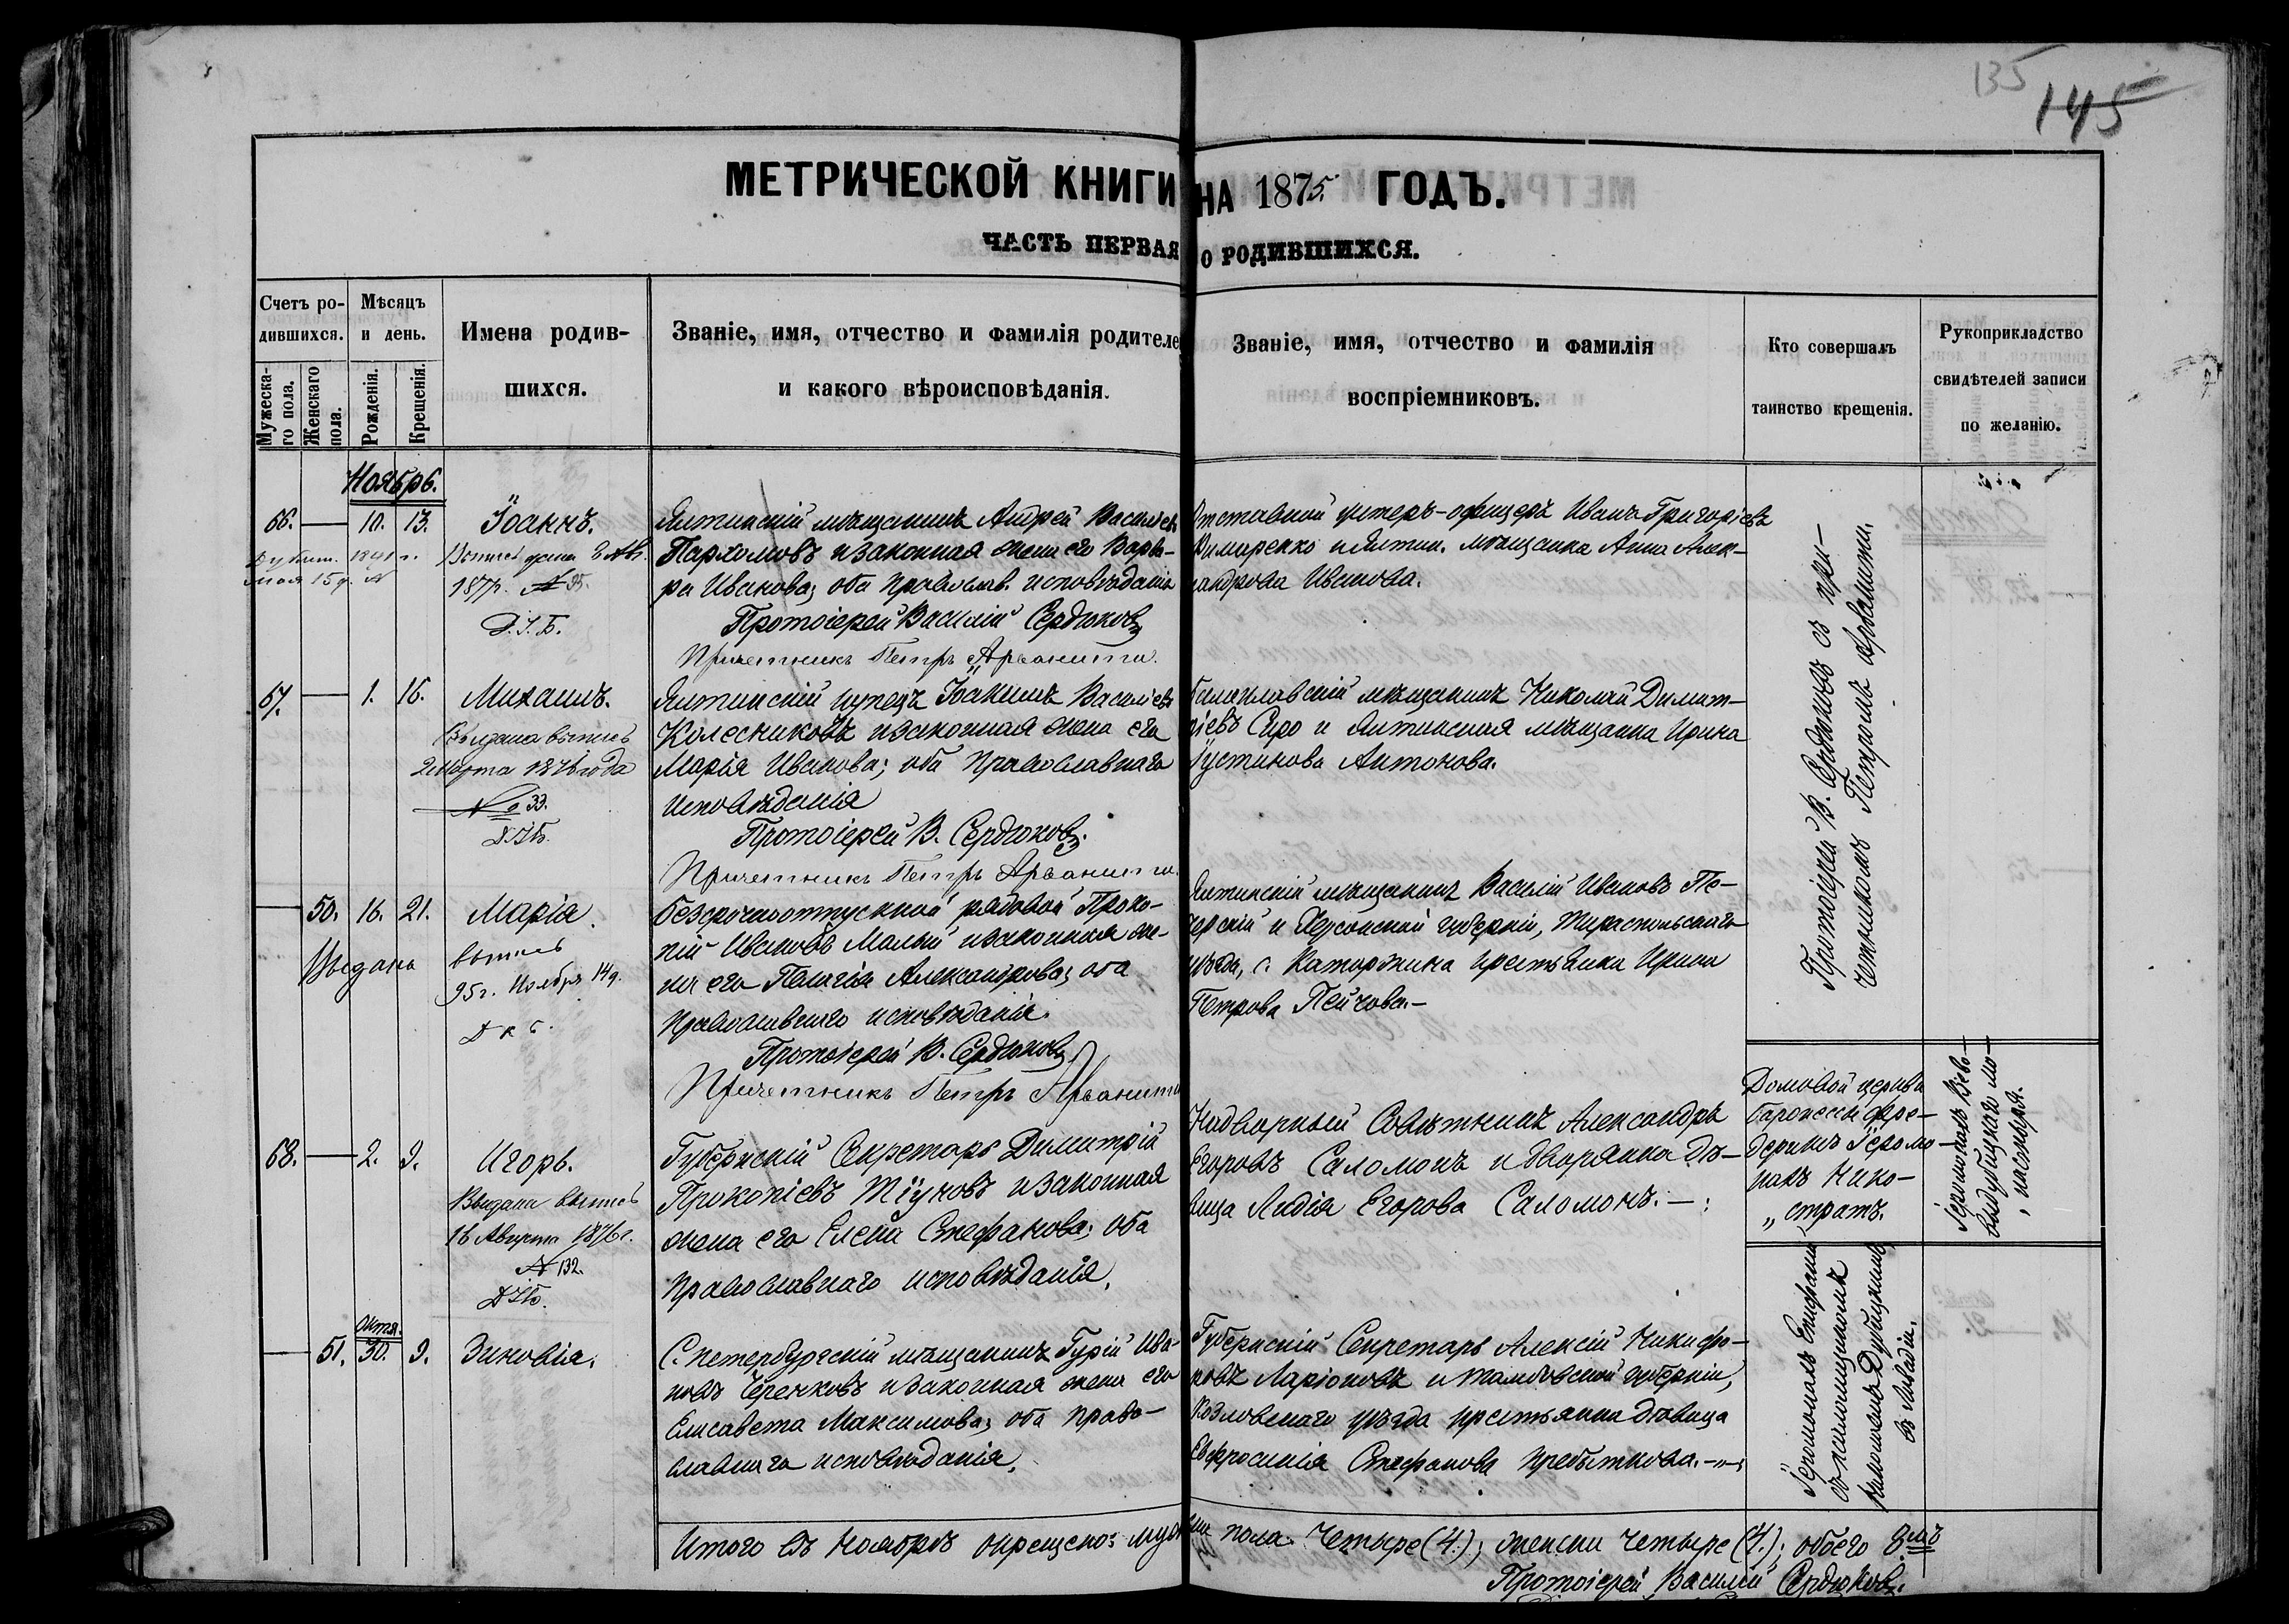 135
145
МЕТРИЧЕСКОЙ КНИГИ НА 1875 ГОДЪ.
ЧАСТЬ ПЕРВАЯ О РОДИВШИХСЯ.
Счетъ ро-
дившихся.
Мужеска-
го пола.
Женскаго
пола.
Мѣсяцъ
и день.
Рожденія.
Крещенія.
Имена родив-
шихся.
Званіе, имя, отчество и фамилія родителе
и какого вѣроисповѣданія.
Званіе, имя, отчество и фамилія
воспріемниковъ.
Кто совершалъ
таинство крещенія.
Рукоприкладство
свидѣтелей записи
по желанію.
Ноябрь.
66. — 10. 13.
Іоаннъ.
1877. № 35.
Д.І.Б.
Ялтинскій мѣщанинъ Андрей Васильев
Пархомовъ и законная жена его Варва-
ра Иванова; оба православ. исповѣданія
Протоіерей Василій Сердюковъ
Причетникъ Петръ Арванити.
Отставной унтеръ-офицеръ Иванъ Григоріевъ
и Ялтин. мѣщанка Анна Алек-
сандрова Иванова.
67. — 1. 16.
Михаилъ.
Выдана выпись
2 Марта 1876 года
№ 33.
ДІБ.
Ялтинскій купецъ Іоанникъ Васильевъ
Колесниковъ и законная жена его
Марія Иванова; оба православнаго
исповѣданія
Протоіерей В. Сердюковъ.
Причетникъ Петръ Арванити.
Балаклавскій мѣщанинъ Николай Димит-
ріевъ Сиро и Ялтинская мѣщанка Ирина
Іустинова Антонова.
Протоіерей В. Сердюковъ съ при-
четникомъ Петромъ Арванити.
— 50. 16. 21.
Марія.
Выдана выпись
95 г. Ноября 14 д.
Безсрочноотпускной рядовой Проко-
пій Ивановъ Малый и законная же-
на его Пелагія Александрова; оба
православнаго исповѣданія.
Протоіерей В. Сердюковъ
Причетникъ Петръ Арванити
Ялтинскій мѣщанинъ Василій Ивановъ Пе-
черскій и Херсонской губерніи, Тираспольскаго
уѣзда, с. Каторжина крестьянка Ирина
Петрова Пейчова.—
68. — 2. 9.
Игорь.
Выдана выпись
16 Августа 1876 г.
№ 132.
ДІБ.
Губернскій Секретарь Димитрій
Прокопіевъ Тіуновъ и законная
жена его Елена Стефанова; оба
православнаго исповѣданія.
Надворный Совѣтникъ Александръ
Егоровъ Саломонъ и дворянка дѣ-
вица Лидія Егорова Саломонъ.—
Домовой церкви
баронессы Фре-
дериксъ Іеромо-
нахъ Нико-
„стратъ.
Іеромонахъ Кіево-
выдубицкаго мо-
„настыря.
— 51.
Октя.
30. 9.
Зиновія.
С. Петербургскій мѣщанинъ Гурій Ива-
новъ Черенковъ и законная жена его
Елисавета Максимова; оба право-
славнаго исповѣданія.
Губернскій Секретарь Алексій Никифо-
ровъ Ларіоновъ и Тамбовской губерніи,
Козловскаго уѣзда крестьянка дѣвица
Евфросинія Стефанова Прибыткова.—
Іеромонахъ
съ псаломщикомъ
въ Ливадіи.
Итого въ Ноябрѣ окрещено: муж
пола Четыре (4); женска четыре (4); обоего 8мь
Протоіерей Василій Сердюковъ.